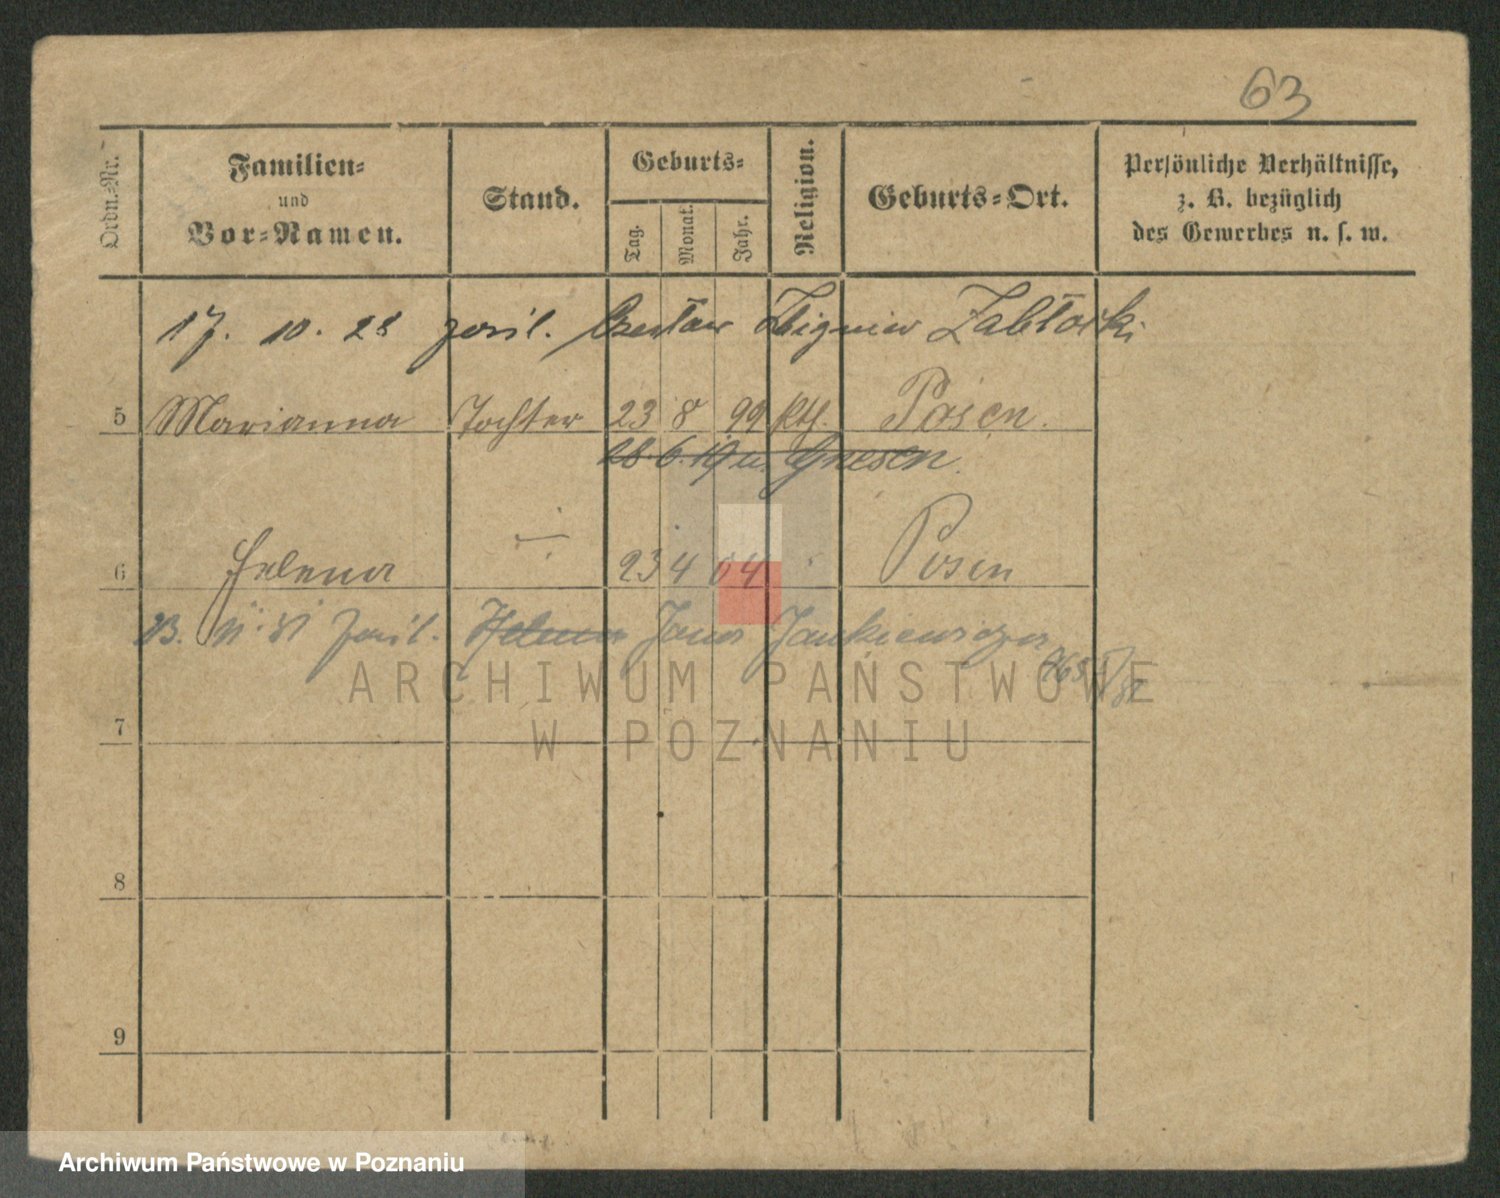 63
Ordn.-Nr. Familien- und Vor-Namen. Stand. Geburts- Tag. Monat. Jahr. Religion. Geburts-Ort. Persönliche Verhältnisse, z. B. bezüglich des Gewerbes u. s. w.
17. 10. 28 Zbigniew Zabłocki
5 Marianna Tochter 23 8 99 Kth. Posen.
28. 6. 19 u. Gnesen
6 Helena 23 4 04 Posen
Helena Jankiewicz
7
8
9
ARCHIWUM PAŃSTWOWE
W POZNANIU
Archiwum Państwowe w Poznaniu